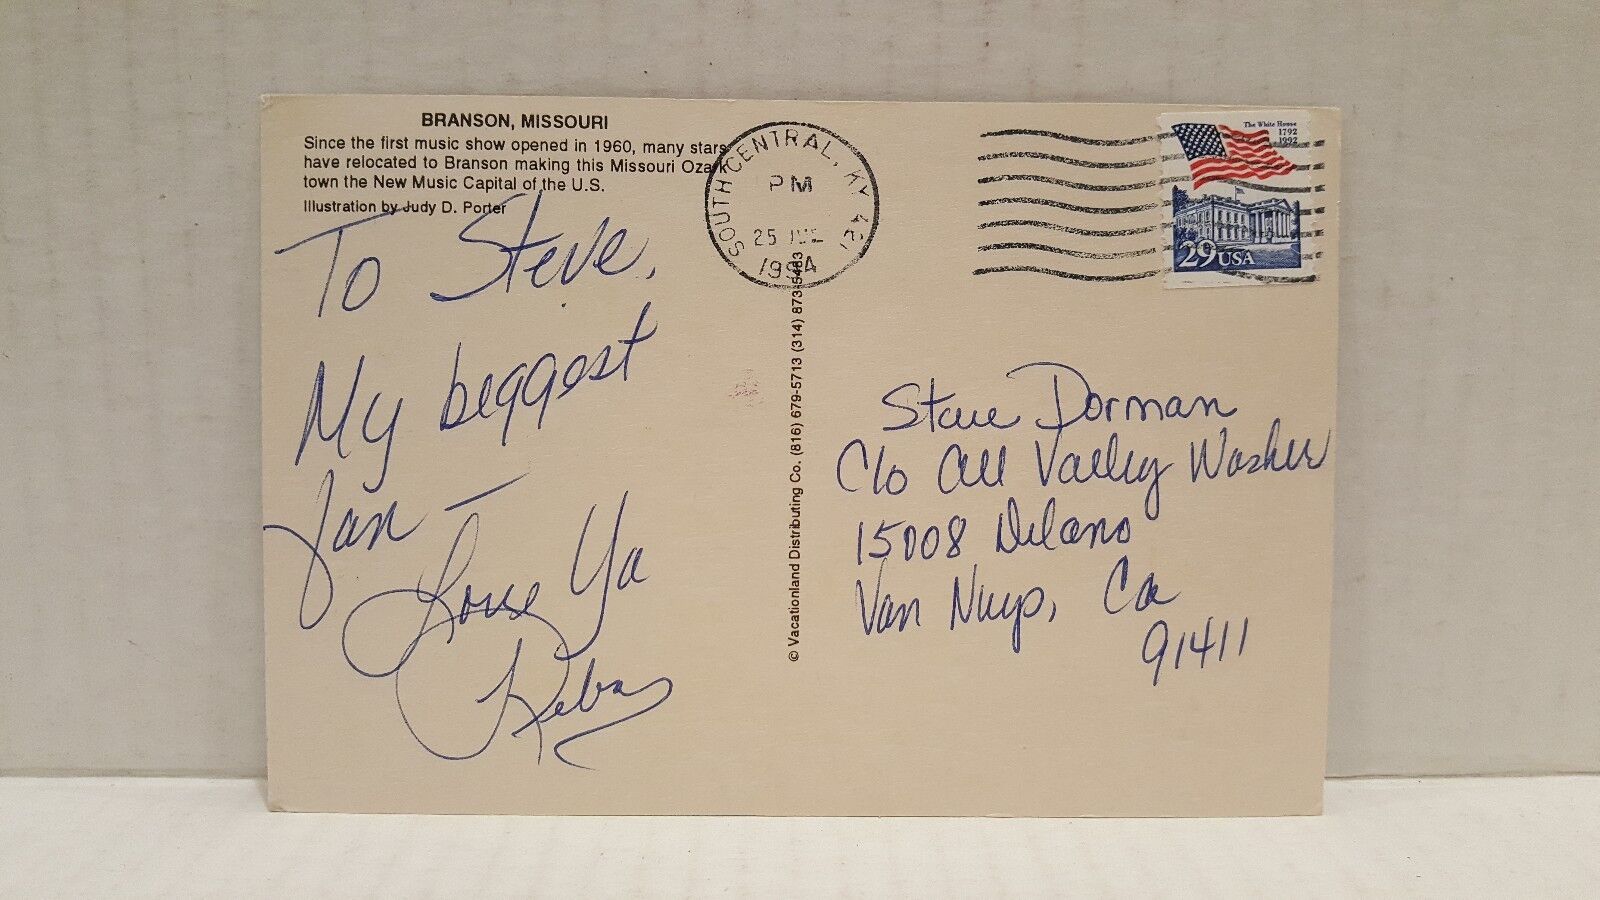 BRANSON, MISSOURI
Since the first music show opened in 1960, many stars
have relocated to Branson making this Missouri Ozark
town the New Music Capital of the U.S.
Illustration by Judy D. Porter
To Steve,
My biggest
fan –
Love Ya
Reba
© Vacationland Distributing Co. (816) 679-5713 (314) 873-5463
SOUTH CENTRAL, KY 421
PM
25
1994
The White House
1792
1992
29 USA
Steve Dorman
C/o All Valley Washer
15008 Delano
Van Nuys, Ca
91411